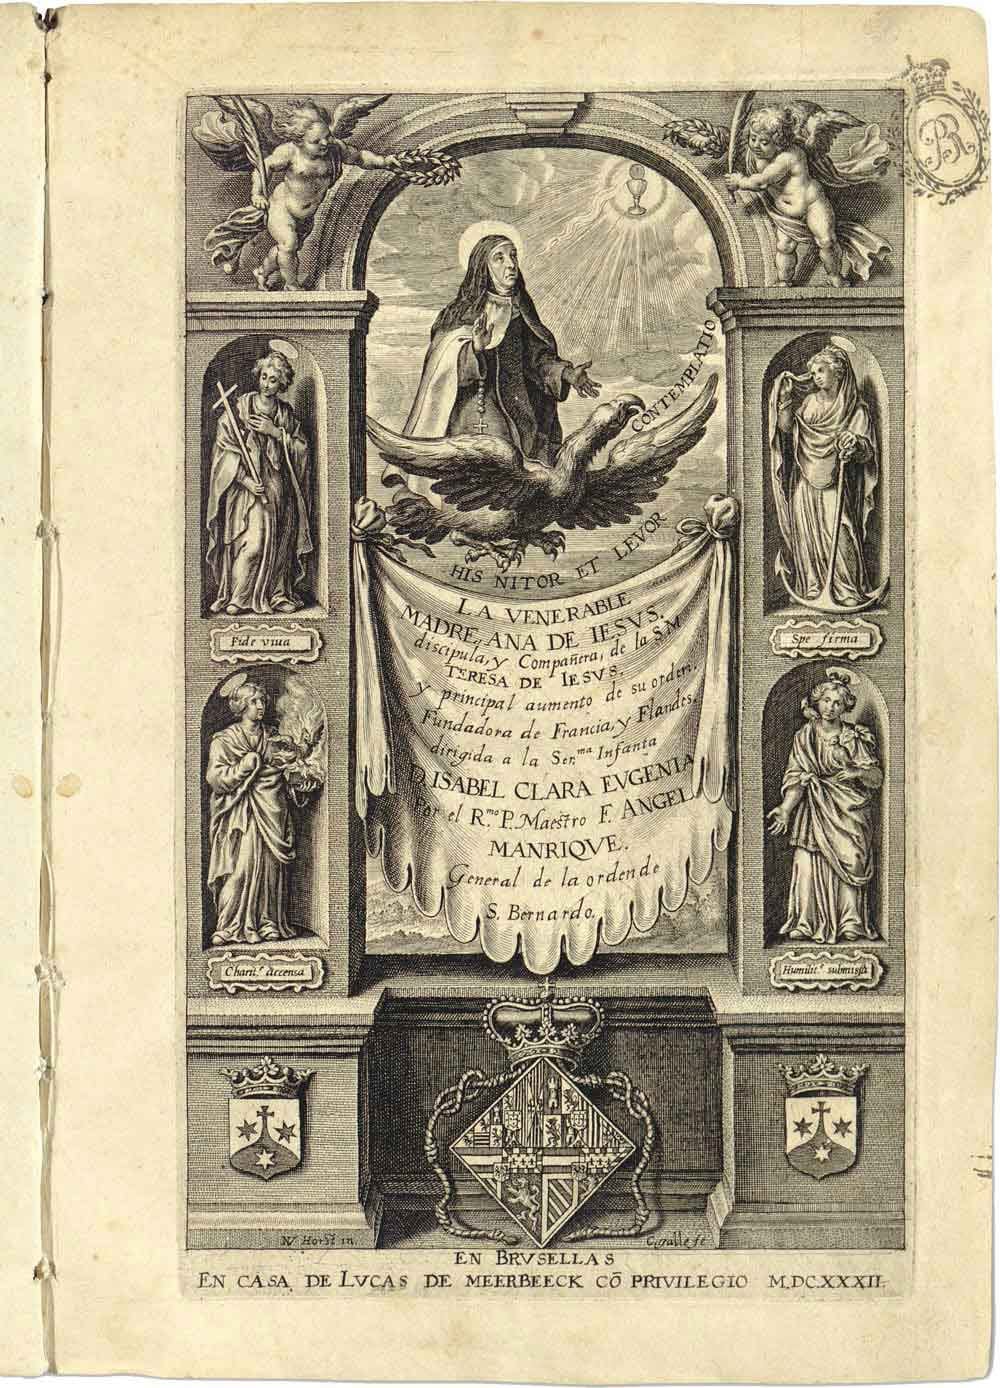 CONTEMPLATIO
HIS NITOR ET LEVOR
LA VENERABLE
MADRE, ANA DE IESVS,
discipula, y Compañera, de la S.M
TERESA DE IESVS.
y principal aumento de su orden.
Fundadora de Francia, y Flandes.
dirigida a la Ser.ma Infanta
D. ISABEL CLARA EVGENIA
Por el R.mo P. Maestro F. ANGEL
MANRIQVE.
General de la orden de
S. Bernardo.
Fide viua
Spe firma
Charit.e accensa
Humilit.e submissa
N Horst in.
C. galle fe
EN BRVSELLAS
EN CASA DE LVCAS DE MEERBEECK CÕ PRIVILEGIO M.DC.XXXII.
BR